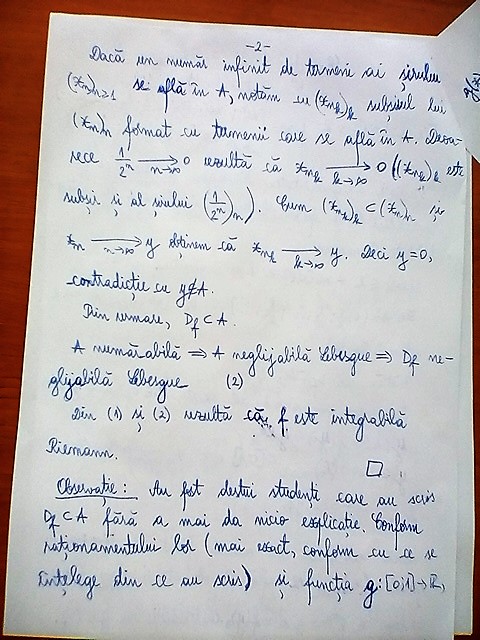 -2-
Dacă un număr infinit de termeni ai șirului
(x_n)_{n≥1} se află în A, notăm cu (x_{n_k})_k subșirul lui
(x_n)_n format cu termenii care se află în A. Deoa-
rece 1/2^n →_{n→∞} 0 rezultă că x_{n_k} →_{k→∞} 0 ((x_{n_k})_k este
subșir și al șirului (1/2^n)_n). Cum (x_{n_k})_k ⊂ (x_n)_n și
x_n →_{n→∞} y obținem că x_{n_k} →_{k→∞} y. Deci y=0,
contradicție cu y∉A.
Prin urmare, D_f ⊂ A.
A numărabilă ⇒ A neglijabilă Lebesgue ⇒ D_f ne-
glijabilă Lebesgue (2)
Din (1) și (2) rezultă că f este integrabilă
Riemann.
□
Observație: Au fost destui studenți care au scris
D_f ⊂ A fără a mai da nicio explicație. Conform
raționamentului lor (mai exact, conform cu ce se
înțelege din ce au scris) și funcția g:[0;1]→ℝ,